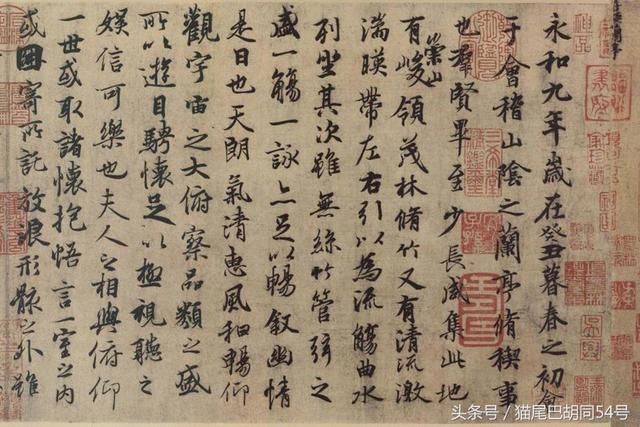 永和九年歲在癸丑暮春之初會
于會稽山陰之蘭亭脩稧事
也羣賢畢至少長咸集此地
有崇山峻領茂林脩竹又有清流激
湍暎帶左右引以為流觴曲水
列坐其次雖無絲竹管弦之
盛一觴一詠亦足以暢敘幽情
是日也天朗氣清惠風和暢仰
觀宇宙之大俯察品類之盛
所以遊目騁懷足以極視聽之
娛信可樂也夫人之相與俯仰
一世或取諸懷抱悟言一室之內
或因寄所託放浪形骸之外雖
头条号 / 猫尾巴胡同54号